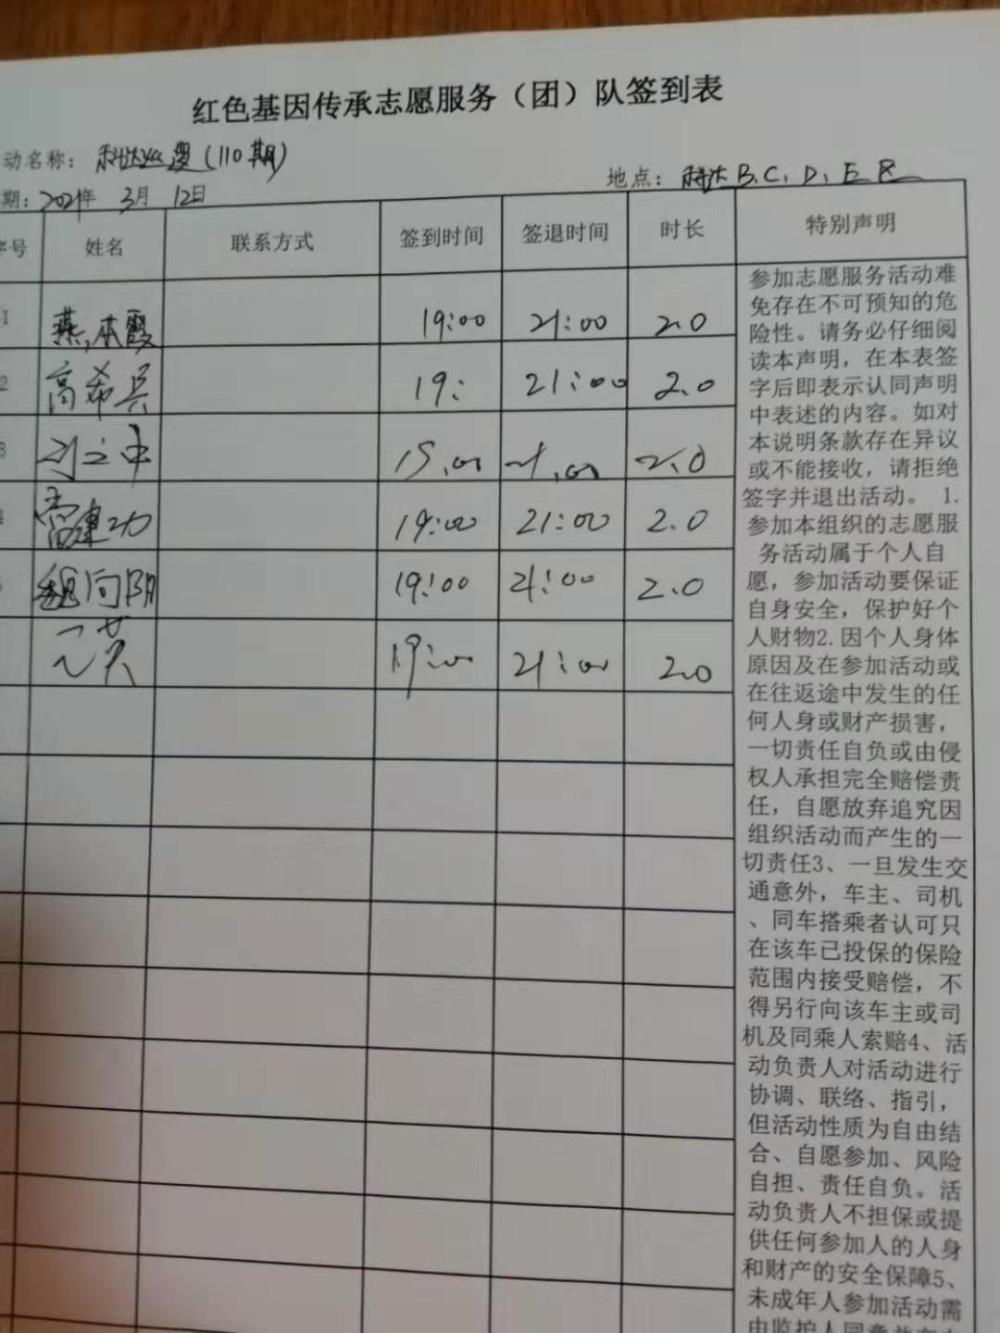 红色基因传承志愿服务（团）队签到表
动名称： 科达巡逻（110期）
期：2021年 3月 12日 地点：科达B、C、D、E区
序号 姓名 联系方式 签到时间 签退时间 时长 特别声明
1 燕本霞 19:00 21:00 2.0
2 高希兵 19: 21:00 2.0
3 刘立中 19:00 21:00 2.0
4 高建功 19:00 21:00 2.0
魏向阳 19:00 21:00 2.0
19:00 21:00 2.0
参加志愿服务活动难
免存在不可预知的危
险性。请务必仔细阅
读本声明，在本表签
字后即表示认同声明
中表述的内容。如对
本说明条款存在异议
或不能接收，请拒绝
签字并退出活动。 1.
参加本组织的志愿服
务活动属于个人自
愿，参加活动要保证
自身安全，保护好个
人财物2.因个人身体
原因及在参加活动或
在往返途中发生的任
何人身或财产损害，
一切责任自负或由侵
权人承担完全赔偿责
任，自愿放弃追究因
组织活动而产生的一
切责任3、一旦发生交
通意外，车主、司机
、同车搭乘者认可只
在该车已投保的保险
范围内接受赔偿，不
得另行向该车主或司
机及同乘人索赔4、活
动负责人对活动进行
协调、联络、指引，
但活动性质为自由结
合、自愿参加、风险
自担、责任自负。活
动负责人不担保或提
供任何参加人的人身
和财产的安全保障5、
未成年人参加活动需
由监护人同意并